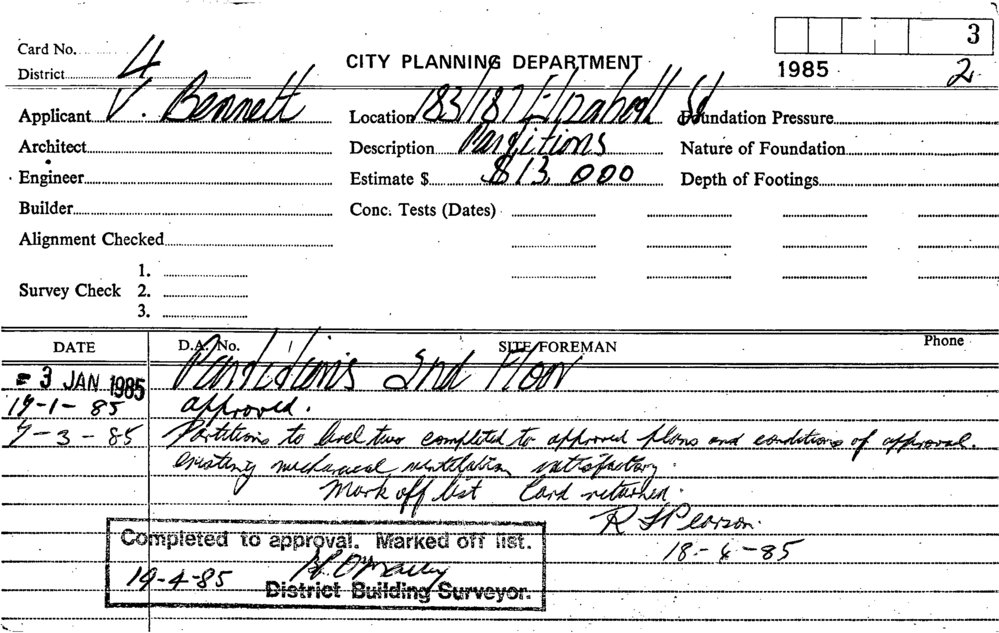 3
Card No.
District 4
CITY PLANNING DEPARTMENT
1985 2
Applicant V. Bennett
Location 183/187 Elizabeth St
Foundation Pressure
Architect
Description Partitions
Nature of Foundation
Engineer
Estimate $ $13,000
Depth of Footings
Builder
Conc. Tests (Dates)
Alignment Checked
Survey Check
1.
2.
3.
DATE D.A. No. SITE FOREMAN Phone
3 JAN 1985 Partitions 2nd Floor
approved.
7-3-85 Partitions to level two completed to approved plans and conditions of approval.
existing mechanical ventilation satisfactory.
Mark off list Card returned.
R Pearson.
85
Completed to approval. Marked off list.
19-4-85 O'Malley
District Building Surveyor.